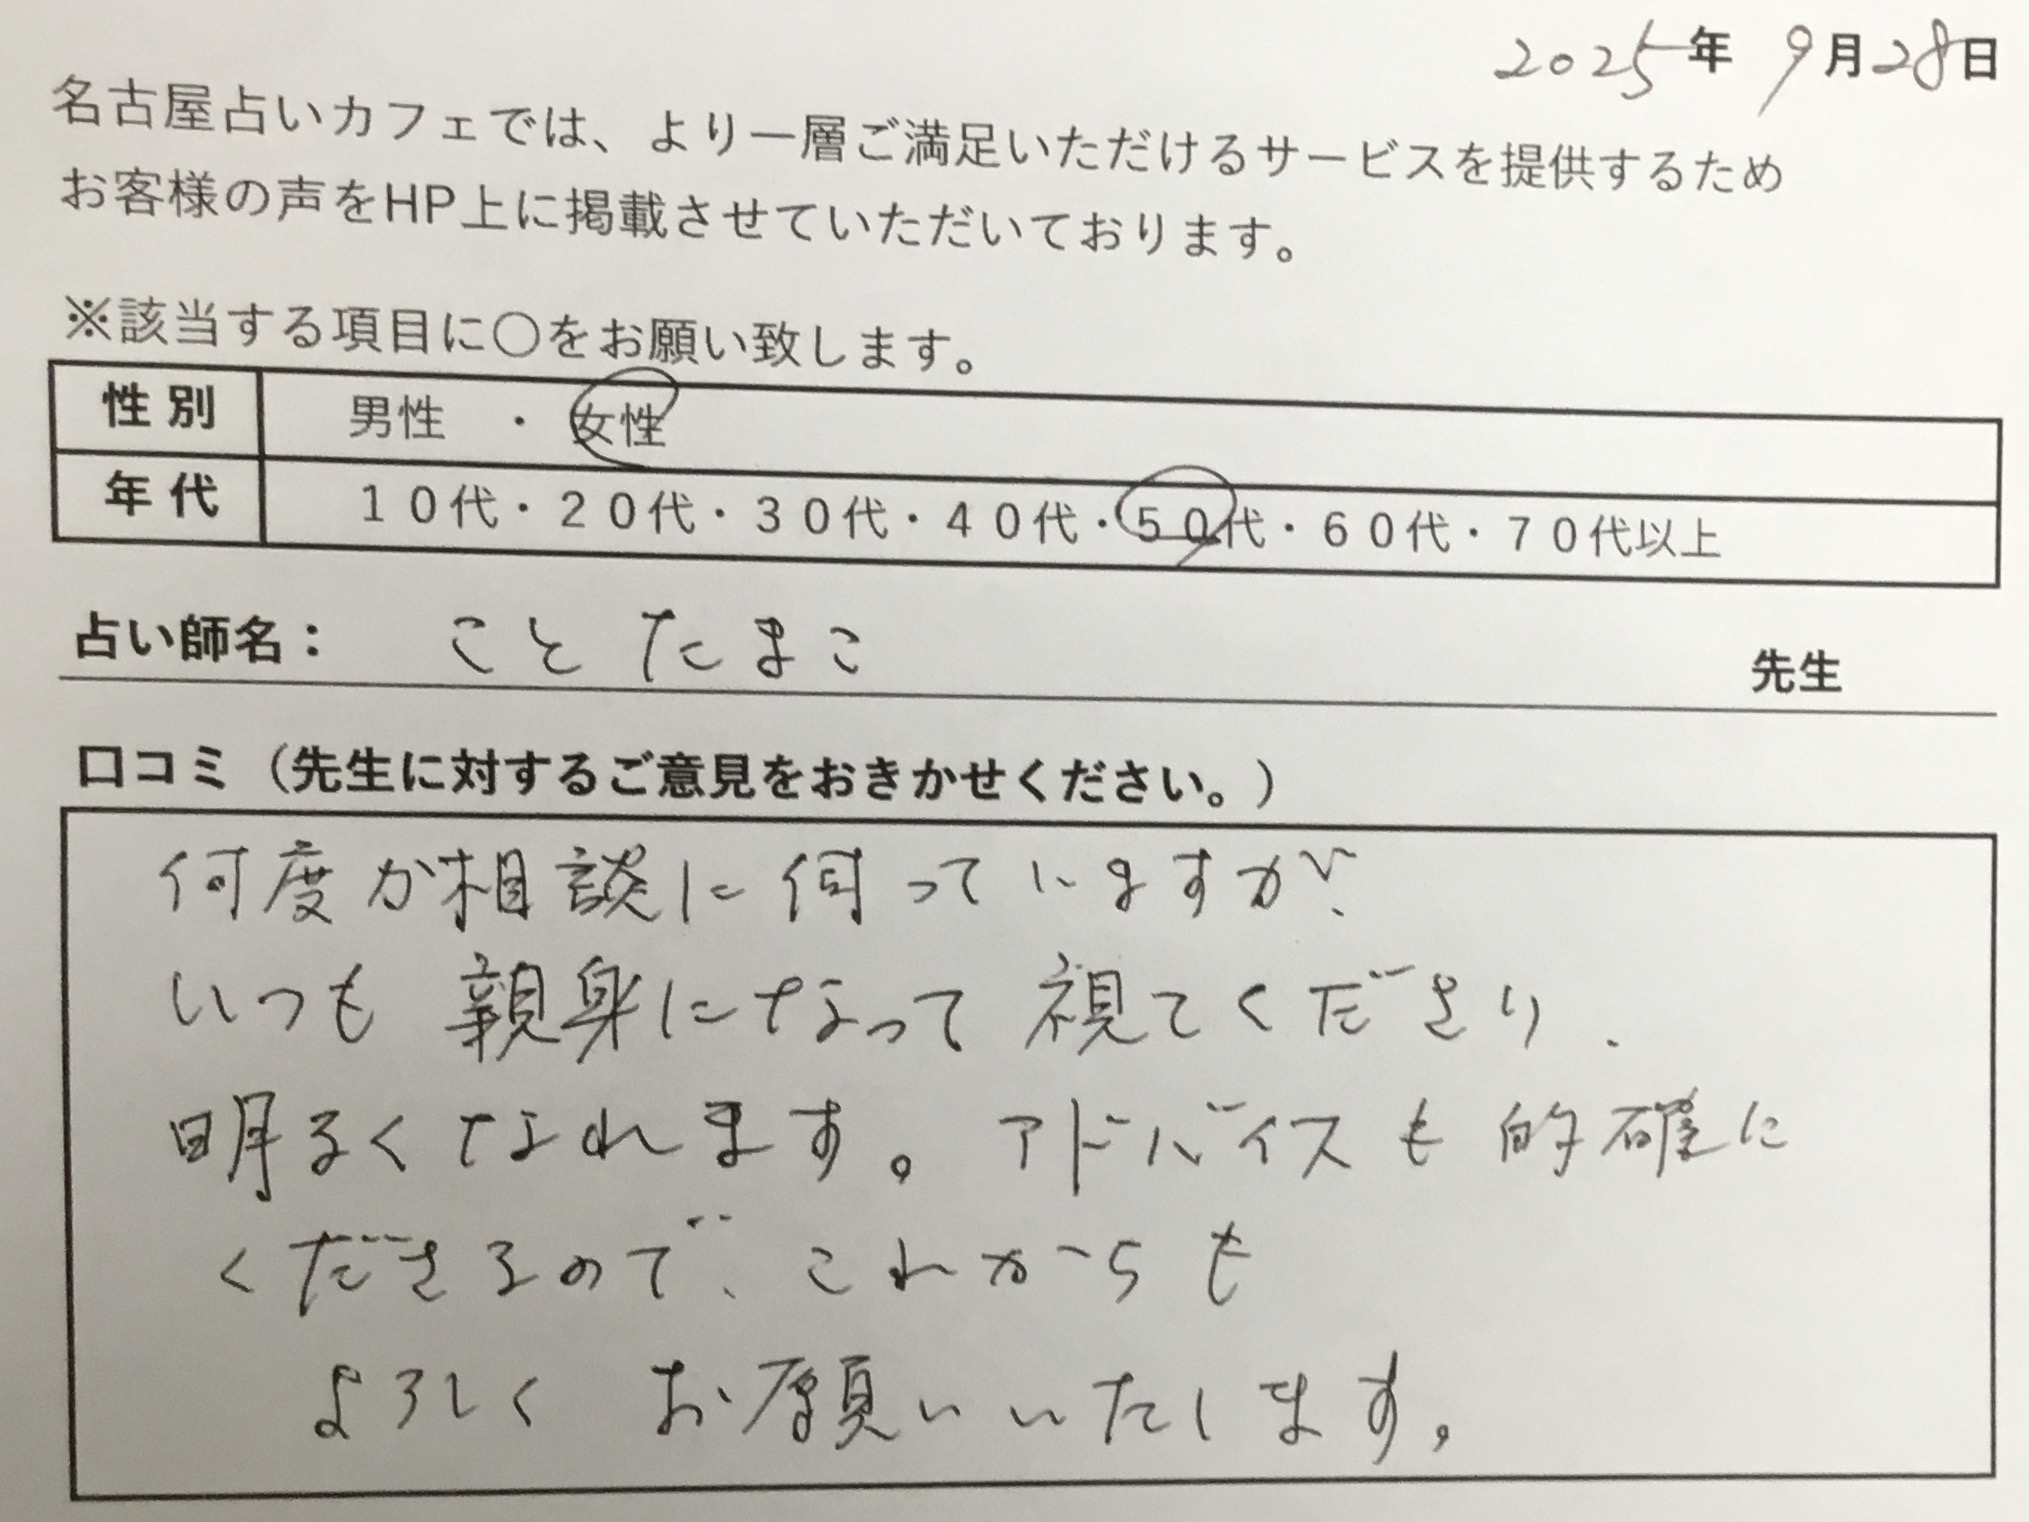 2025年 9月28日
名古屋占いカフェでは、より一層ご満足いただけるサービスを提供するため
お客様の声をHP上に掲載させていただいております。
※該当する項目に〇をお願い致します。
性別 男性 ・ 女性
年代 10代・20代・30代・40代・50代・60代・70代以上
占い師名： ことたまこ 先生
口コミ（先生に対するご意見をおきかせください。）
何度か相談に伺っていますが、
いつも親身になって視てくださり、
明るくなれます。アドバイスも的確に
くださるので、これからも
よろしくお願いいたします。